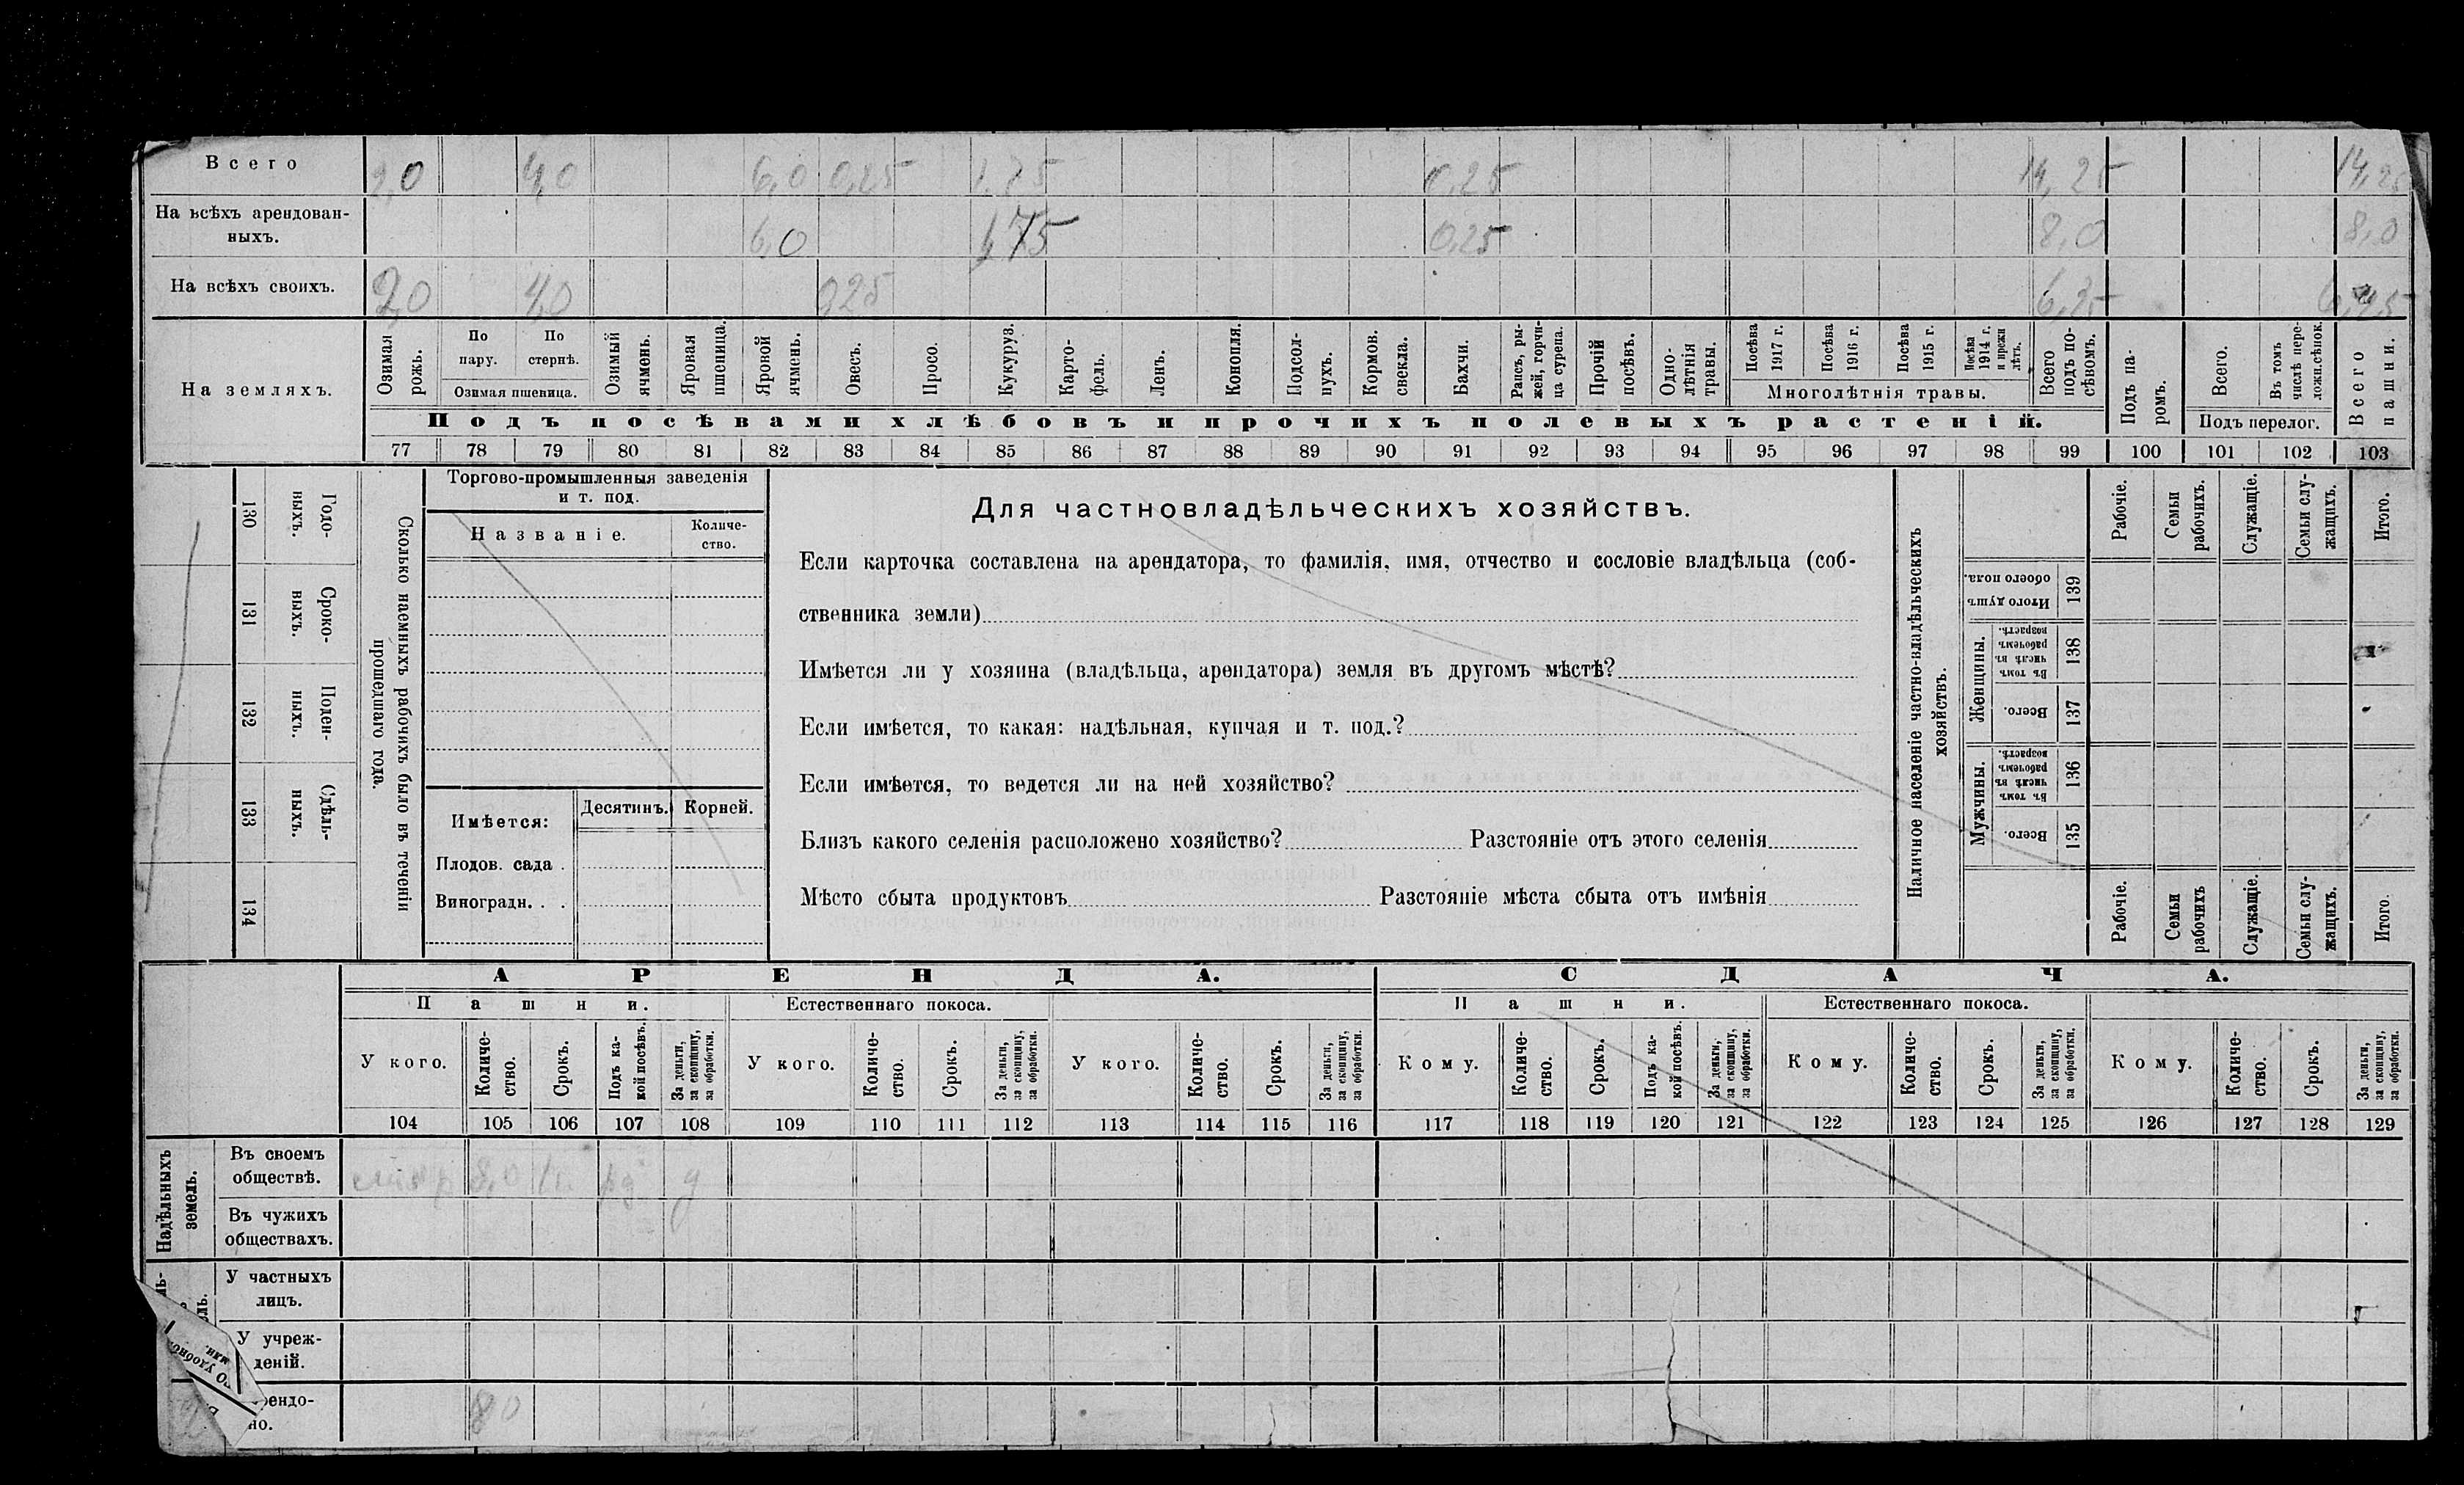 Всего 2,0 4,0 6,0 0,25 1,75 0,25 14,25 14,25
На всѣхъ арендован-
ныхъ. 6,0 1,75 0,25 8,0 8,0
На всѣхъ своихъ. 2,0 4,0 0,25 6,25
На земляхъ.
Озимая рожь.
По пару.
По стернѣ.
Озимая пшеница.
Озимый ячмень.
Яровая пшеница.
Яровой ячмень.
Овесъ.
Просо.
Кукуруз.
Карто-
фель.
Ленъ.
Конопля.
Подсол-
нухъ.
Кормов.
свекла.
Бахчи.
Рапсъ, ры-
жей, горчи-
ца сурепа.
Прочій
посѣвъ.
Одно-
лѣтнія
травы.
Посѣва
1917 г.
Посѣва
1916 г.
Посѣва
1915 г.
Посѣва
1914 г.
и прежн
лѣтъ.
Многолѣтнія травы.
Всего
подъ по-
сѣвомъ.
Подъ па-
ромъ.
Всего.
Въ томъ
числѣ пере-
ложн.сѣнок.
Подъ перелог.
Всего
пашни.
Подъ посѣвами хлѣбовъ и прочихъ полевыхъ растеній.
77 78 79 80 81 82 83 84 85 86 87 88 89 90 91 92 93 94 95 96 97 98 99 100 101 102 103
130 Годо-
ныхъ.
131 Сроко-
ныхъ.
132 Поден-
ныхъ.
133 Сдѣль-
ныхъ.
134
Сколько наемныхъ рабочихъ было въ теченіи
прошедшаго года.
Торгово-промышленныя заведенія
и т. под.
Названіе.
Количе-
ство.
Имѣется:
Десятинъ.
Корней.
Плодов. сада .
Виноградн. . .
Для частновладѣльческихъ хозяйствъ.
Если карточка составлена на арендатора, то фамилія, имя, отчество и сословіе владѣльца (соб-
ственника земли)
Имѣется ли у хозяина (владѣльца, арендатора) земля въ другомъ мѣстѣ?
Если имѣется, то какая: надѣльная, купчая и т. под.?
Если имѣется, то ведется ли на ней хозяйство?
Близъ какого селенія расположено хозяйство? Разстояніе отъ этого селенія
Мѣсто сбыта продуктовъ Разстояніе мѣста сбыта отъ имѣнія
Наличное населеніе частно-владѣльческихъ
хозяйствъ.
Рабочіе.
Семьи
рабочихъ.
Служащіе.
Семьи слу-
жащихъ.
Итого.
Итого душъ
обоего пола.
139
Женщины.
Въ томъ
числѣ въ
рабочемъ
возрастѣ.
138
Всего.
137
Мужчины.
Въ томъ
числѣ въ
рабочемъ
возрастѣ.
136
Всего.
135
Рабочіе.
Семьи
рабочихъ
Служащіе.
Семьи слу-
жащихъ.
Итого.
АРЕНДА. СДАЧА.
Пашни. Естественнаго покоса. Пашни. Естественнаго покоса.
У кого.
Количе-
ство.
Срокъ.
Подъ ка-
кой посѣвъ.
За деньги,
за скопщину,
за обработки.
У кого.
Количе-
ство.
Срокъ.
За деньги,
за скопщину,
за обработки.
У кого.
Количе-
ство.
Срокъ.
За деньги,
за скопщину,
за обработки.
Кому.
Количе-
ство.
Срокъ.
Подъ ка-
кой посѣвъ.
За деньги,
за скопщину,
за обработки.
Кому.
Количе-
ство.
Срокъ.
За деньги,
за скопщину,
за обработки.
Кому.
Количе-
ство.
Срокъ.
За деньги,
за скопщину,
за обработки.
104 105 106 107 108 109 110 111 112 113 114 115 116 117 118 119 120 121 122 123 124 125 126 127 128 129
Надѣльныхъ
земель.
Въ своемъ
обществѣ. 8,0
Въ чужихъ
обществахъ.
У частныхъ
лицъ.
У учреж-
деній.
8,0